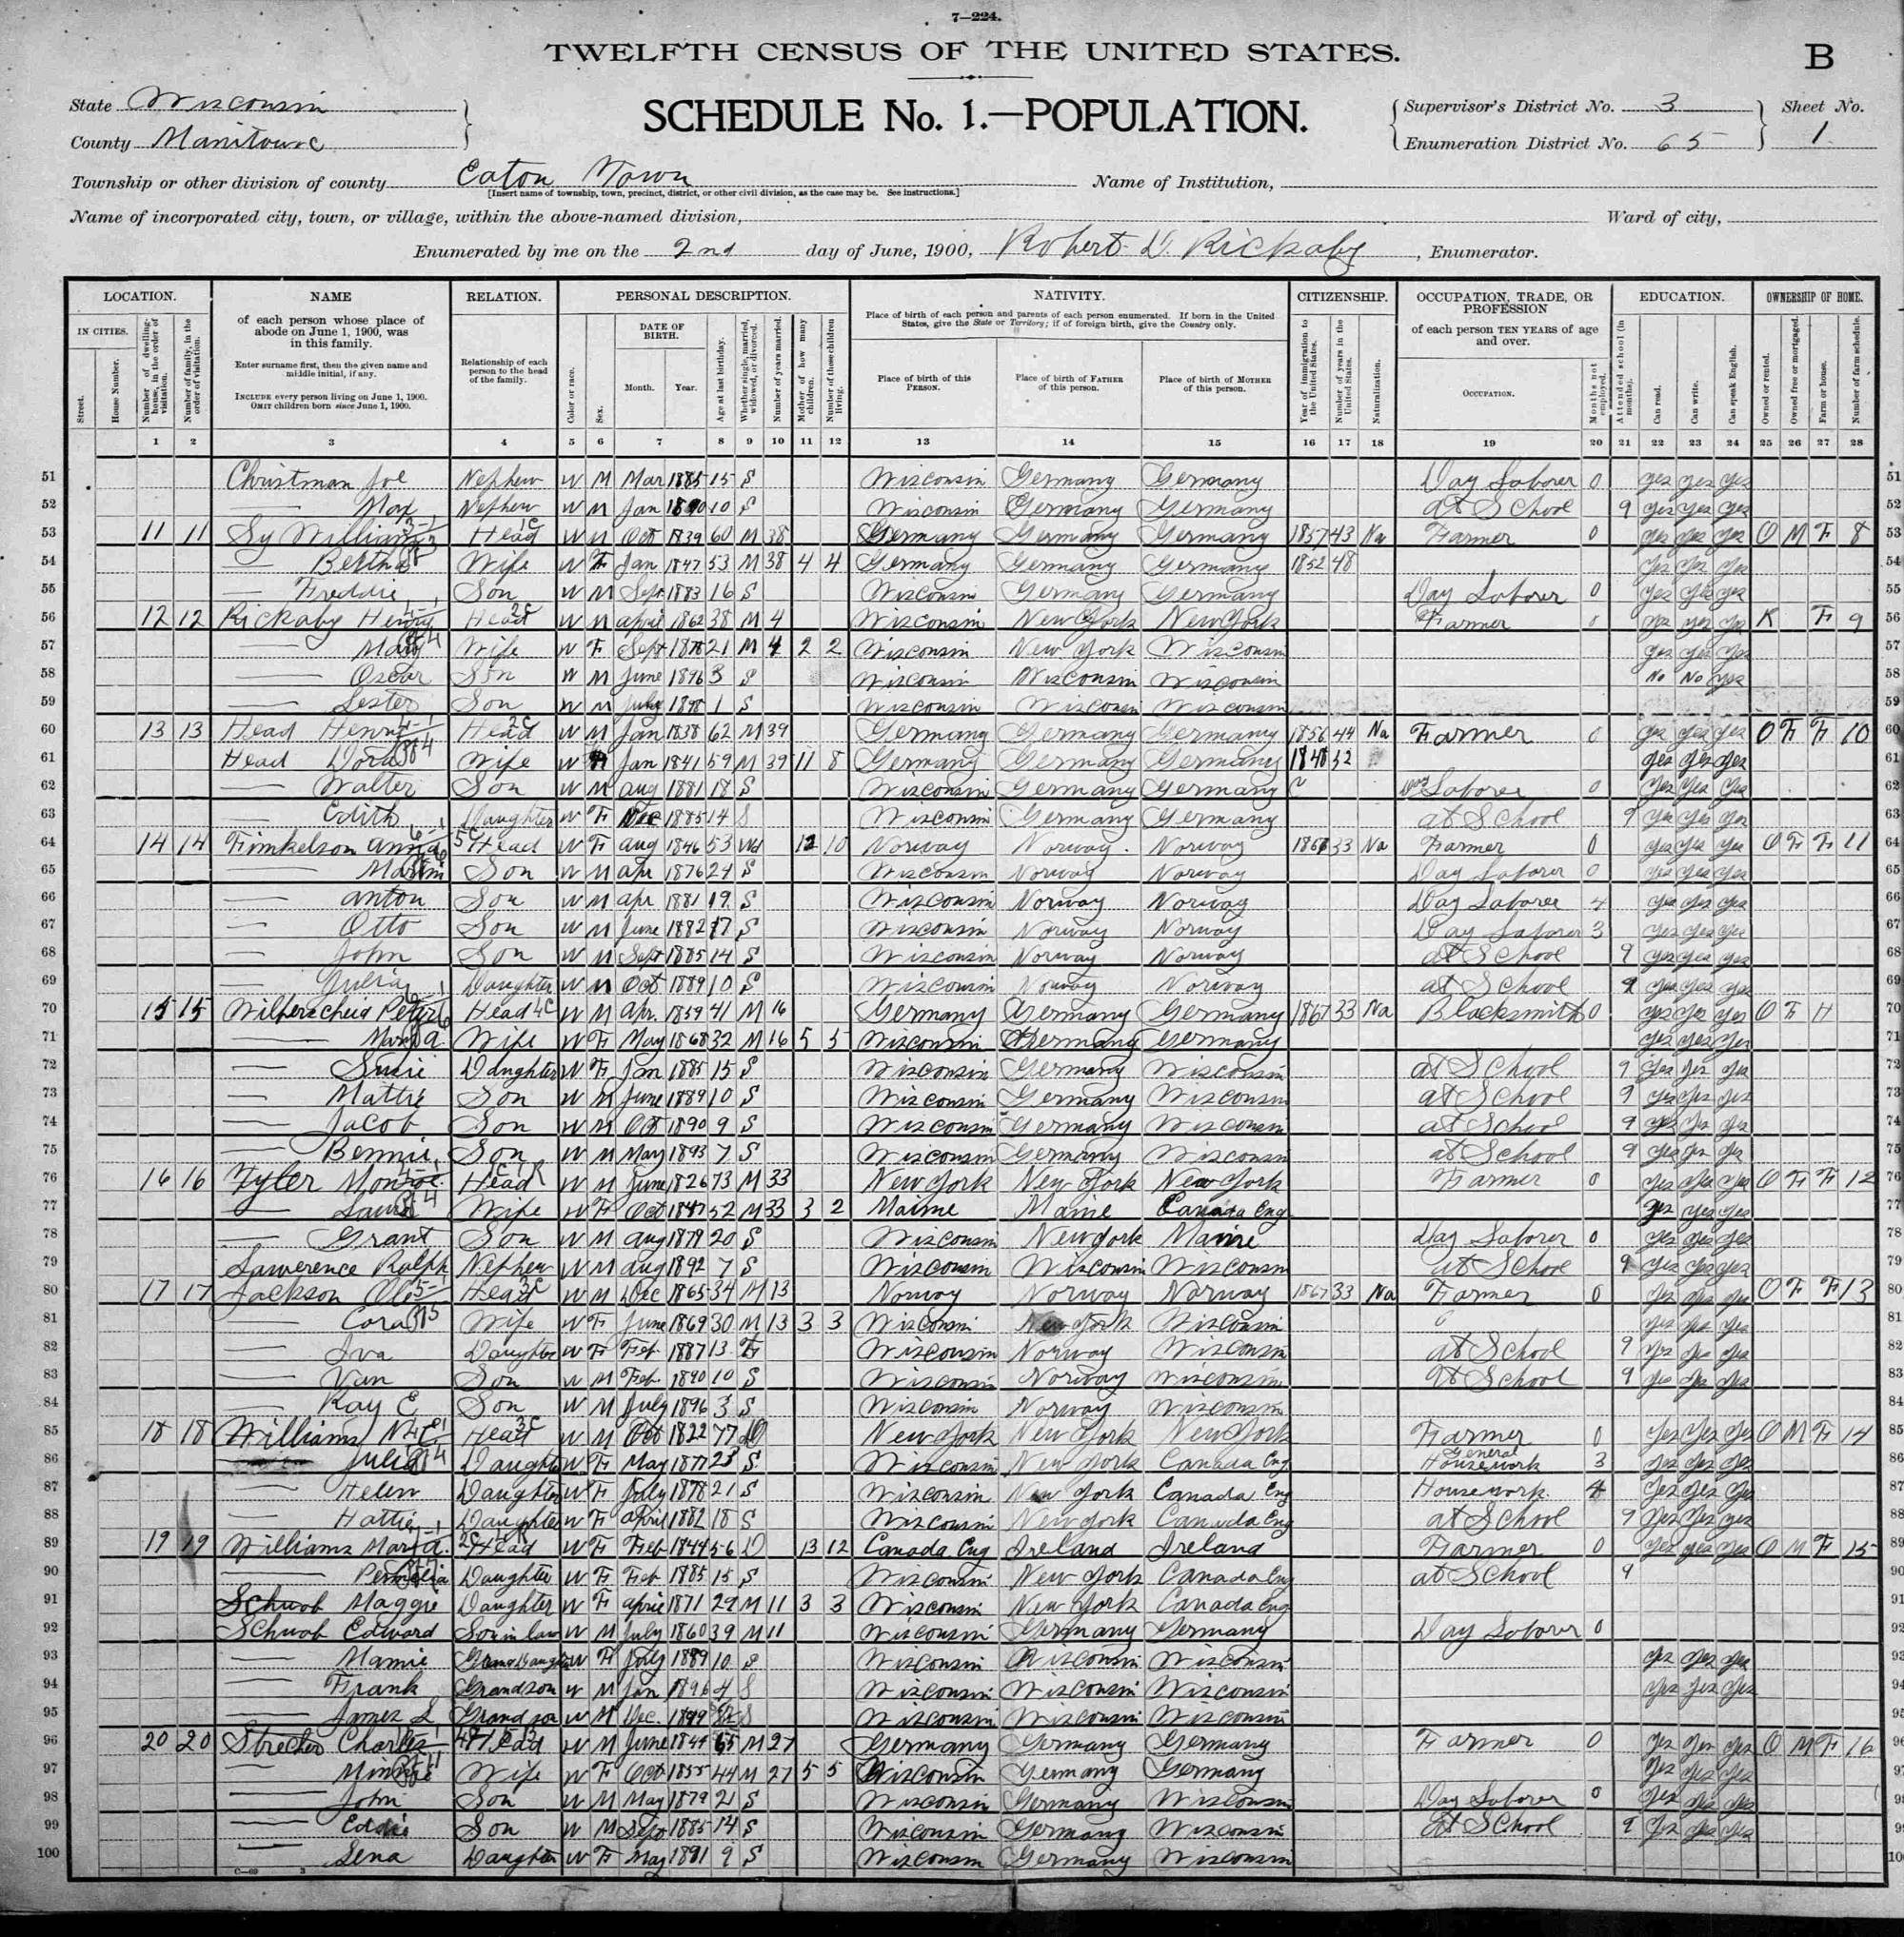 7—224.
TWELFTH CENSUS OF THE UNITED STATES.
B
State Wisconsin
County Manitowoc
SCHEDULE No. 1.—POPULATION.
Supervisor's District No. 3
Enumeration District No. 65
Sheet No.
1
Township or other division of county Eaton Town
Name of Institution,
[Insert name of township, town, precinct, district, or other civil division, as the case may be. See instructions.]
Name of incorporated city, town, or village, within the above-named division,
Ward of city,
Enumerated by me on the 2nd day of June, 1900, Robert D. Rickaby, Enumerator.
LOCATION. NAME RELATION. PERSONAL DESCRIPTION. NATIVITY. CITIZENSHIP. OCCUPATION, TRADE, OR PROFESSION EDUCATION. OWNERSHIP OF HOME.
IN CITIES.
Street.
House Number.
Number of dwelling-house, in the order of visitation.
Number of family, in the order of visitation.
of each person whose place of abode on June 1, 1900, was in this family.
Enter surname first, then the given name and middle initial, if any.
INCLUDE every person living on June 1, 1900.
OMIT children born since June 1, 1900.
Relationship of each person to the head of the family.
Color or race.
Sex.
DATE OF BIRTH.
Month. Year.
Age at last birthday.
Whether single, married, widowed, or divorced.
Number of years married.
Mother of how many children.
Number of these children living.
Place of birth of each person and parents of each person enumerated. If born in the United States, give the State or Territory; if of foreign birth, give the Country only.
Place of birth of this PERSON.
Place of birth of FATHER of this person.
Place of birth of MOTHER of this person.
Year of immigration to the United States.
Number of years in the United States.
Naturalization.
of each person TEN YEARS of age and over.
OCCUPATION.
Months not employed.
Attended school (in months).
Can read.
Can write.
Can speak English.
Owned or rented.
Owned free or mortgaged.
Farm or house.
Number of farm schedule.
1 2 3 4 5 6 7 8 9 10 11 12 13 14 15 16 17 18 19 20 21 22 23 24 25 26 27 28
51 Christman Joe Nephew W M Mar 1885 15 S Wisconsin Germany Germany Day Laborer 0 yes yes yes 51
52 Max Nephew W M Jan 1890 10 S Wisconsin Germany Germany at School 9 yes yes yes 52
53 11 11 Sy William Head W M Oct 1839 60 M 38 Germany Germany Germany 1857 43 Na Farmer 0 yes yes yes O M F 8 53
54 Bertha Wife W F Jan 1847 53 M 38 4 4 Germany Germany Germany 1852 48 yes yes yes 54
55 Freddie Son W M Sept 1883 16 S Wisconsin Germany Germany Day Laborer 0 yes yes yes 55
56 12 12 Rickaby Henry Head W M april 1862 38 M 4 Wisconsin New York New York Farmer 0 yes yes yes R F 9 56
57 Mary Wife W F Sept 1878 21 M 4 2 2 Wisconsin New York Wisconsin yes yes yes 57
58 Oscar Son W M June 1896 3 S Wisconsin Wisconsin Wisconsin No No yes 58
59 Lester Son W M July 1898 1 S Wisconsin Wisconsin Wisconsin 59
60 13 13 Head Henry Head W M Jan 1838 62 M 39 Germany Germany Germany 1856 44 Na Farmer 0 yes yes yes O F F 10 60
61 Head Dora Wife W Jan 1841 59 M 39 11 8 Germany Germany Germany yes yes yes 61
62 Walter Son W M aug 1881 18 S Wisconsin Germany Germany Laborer 0 yes yes yes 62
63 Edith Daughter W F Dec 1885 14 S Wisconsin Germany Germany at School 9 yes yes yes 63
64 14 14 Finkelson anna Head W F aug 1846 53 Wd 12 10 Norway Norway Norway 1867 33 Na Farmer 0 yes yes yes O F F 11 64
65 Martin Son W M apr 1876 24 S Wisconsin Norway Norway Day Laborer 0 yes yes yes 65
66 anton Son W M apr 1881 19 S Wisconsin Norway Norway Day Laborer 4 yes yes yes 66
67 Otto Son W M June 1882 17 S Wisconsin Norway Norway Day Laborer 3 yes yes yes 67
68 John Son W M Sept 1885 14 S Wisconsin Norway Norway at School 9 yes yes yes 68
69 Julia Daughter W M Oct 1889 10 S Wisconsin Norway Norway at School 9 yes yes yes 69
70 15 15 Wilperscheid Peter Head W M Apr. 1859 41 M 16 Germany Germany Germany 1867 33 Na Blacksmith 0 yes yes yes O F H 70
71 Mary a. Wife W F May 1868 32 M 16 5 5 Wisconsin Germany Germany yes yes yes 71
72 Susie Daughter W F Jan 1885 15 S Wisconsin Germany Wisconsin at School 9 yes yes yes 72
73 Mattie Son W M June 1889 10 S Wisconsin Germany Wisconsin at School 9 yes yes yes 73
74 Jacob Son W M Oct 1890 9 S Wisconsin Germany Wisconsin at School 9 yes yes yes 74
75 Bennie Son W M May 1893 7 S Wisconsin Germany Wisconsin at School 9 yes yes yes 75
76 16 16 Tyler Monroe Head W M June 1826 73 M 33 New York New York New York Farmer 0 yes yes yes O F F 12 76
77 Laura Wife W F Oct 1847 52 M 33 3 2 Maine Maine Canada Eng yes yes yes 77
78 Grant Son W M aug 1879 20 S Wisconsin New York Maine Day Laborer 0 yes yes yes 78
79 Lawerence Ralph Nephew W M aug 1892 7 S Wisconsin Wisconsin Wisconsin at School 9 yes yes yes 79
80 17 17 Jackson Ole Head W M Dec 1865 34 M 13 Norway Norway Norway 1867 33 Na Farmer 0 yes yes yes O F F 13 80
81 Cora Wife W F June 1869 30 M 13 3 3 Wisconsin New York Wisconsin yes yes yes 81
82 Iva Daughter W F Feb. 1887 13 Wisconsin Norway Wisconsin at School 9 yes yes yes 82
83 Van Son W M Feb. 1890 10 S Wisconsin Norway Wisconsin at School 9 yes yes yes 83
84 Ray E Son W M July 1896 3 S Wisconsin Norway Wisconsin 84
85 18 18 Williams Head W M Oct 1822 77 D New York New York New York Farmer 0 yes yes yes O M F 14 85
86 Julia Daughter W F May 1877 23 S Wisconsin New York Canada Eng General Housework 3 yes yes yes 86
87 Helen Daughter W F July 1878 21 S Wisconsin New York Canada Eng Housework. 4 yes yes yes 87
88 Hattie Daughter W F april 1882 18 S Wisconsin New York Canada Eng at School 9 yes yes yes 88
89 19 19 Williams Mary a. Head W F Feb 1844 56 D 13 12 Canada Eng Ireland Ireland Farmer 0 yes yes yes O M F 15 89
90 Permelia Daughter W F Feb 1885 15 S Wisconsin New York Canada Eng at School 9 90
91 Schwob Maggie Daughter W F april 1871 29 M 11 3 3 Wisconsin New York Canada Eng 91
92 Schwob Edward Son in law W M July 1860 39 M 11 Wisconsin Germany Germany Day Laborer 0 92
93 Mamie Grand Daughter W F July 1889 10 S Wisconsin Wisconsin Wisconsin yes yes yes 93
94 Frank Grandson W M Jan 1896 4 S Wisconsin Wisconsin Wisconsin yes yes yes 94
95 James L Grandson W M Dec. 1899 S Wisconsin Wisconsin Wisconsin 95
96 20 20 Strecher Charles Head W M June 1844 M 27 Germany Germany Germany Farmer 0 yes yes yes O M F 16 96
97 Minnie Wife W F Oct 1855 44 M 27 5 5 Wisconsin Germany Germany yes yes yes 97
98 John Son W M May 1879 21 S Wisconsin Germany Wisconsin Day Laborer 0 yes yes yes 98
99 Eddie Son W M Sept 1885 14 S Wisconsin Germany Wisconsin at School 9 yes yes yes 99
100 Lena Daughter W F May 1891 9 S Wisconsin Germany Wisconsin 100